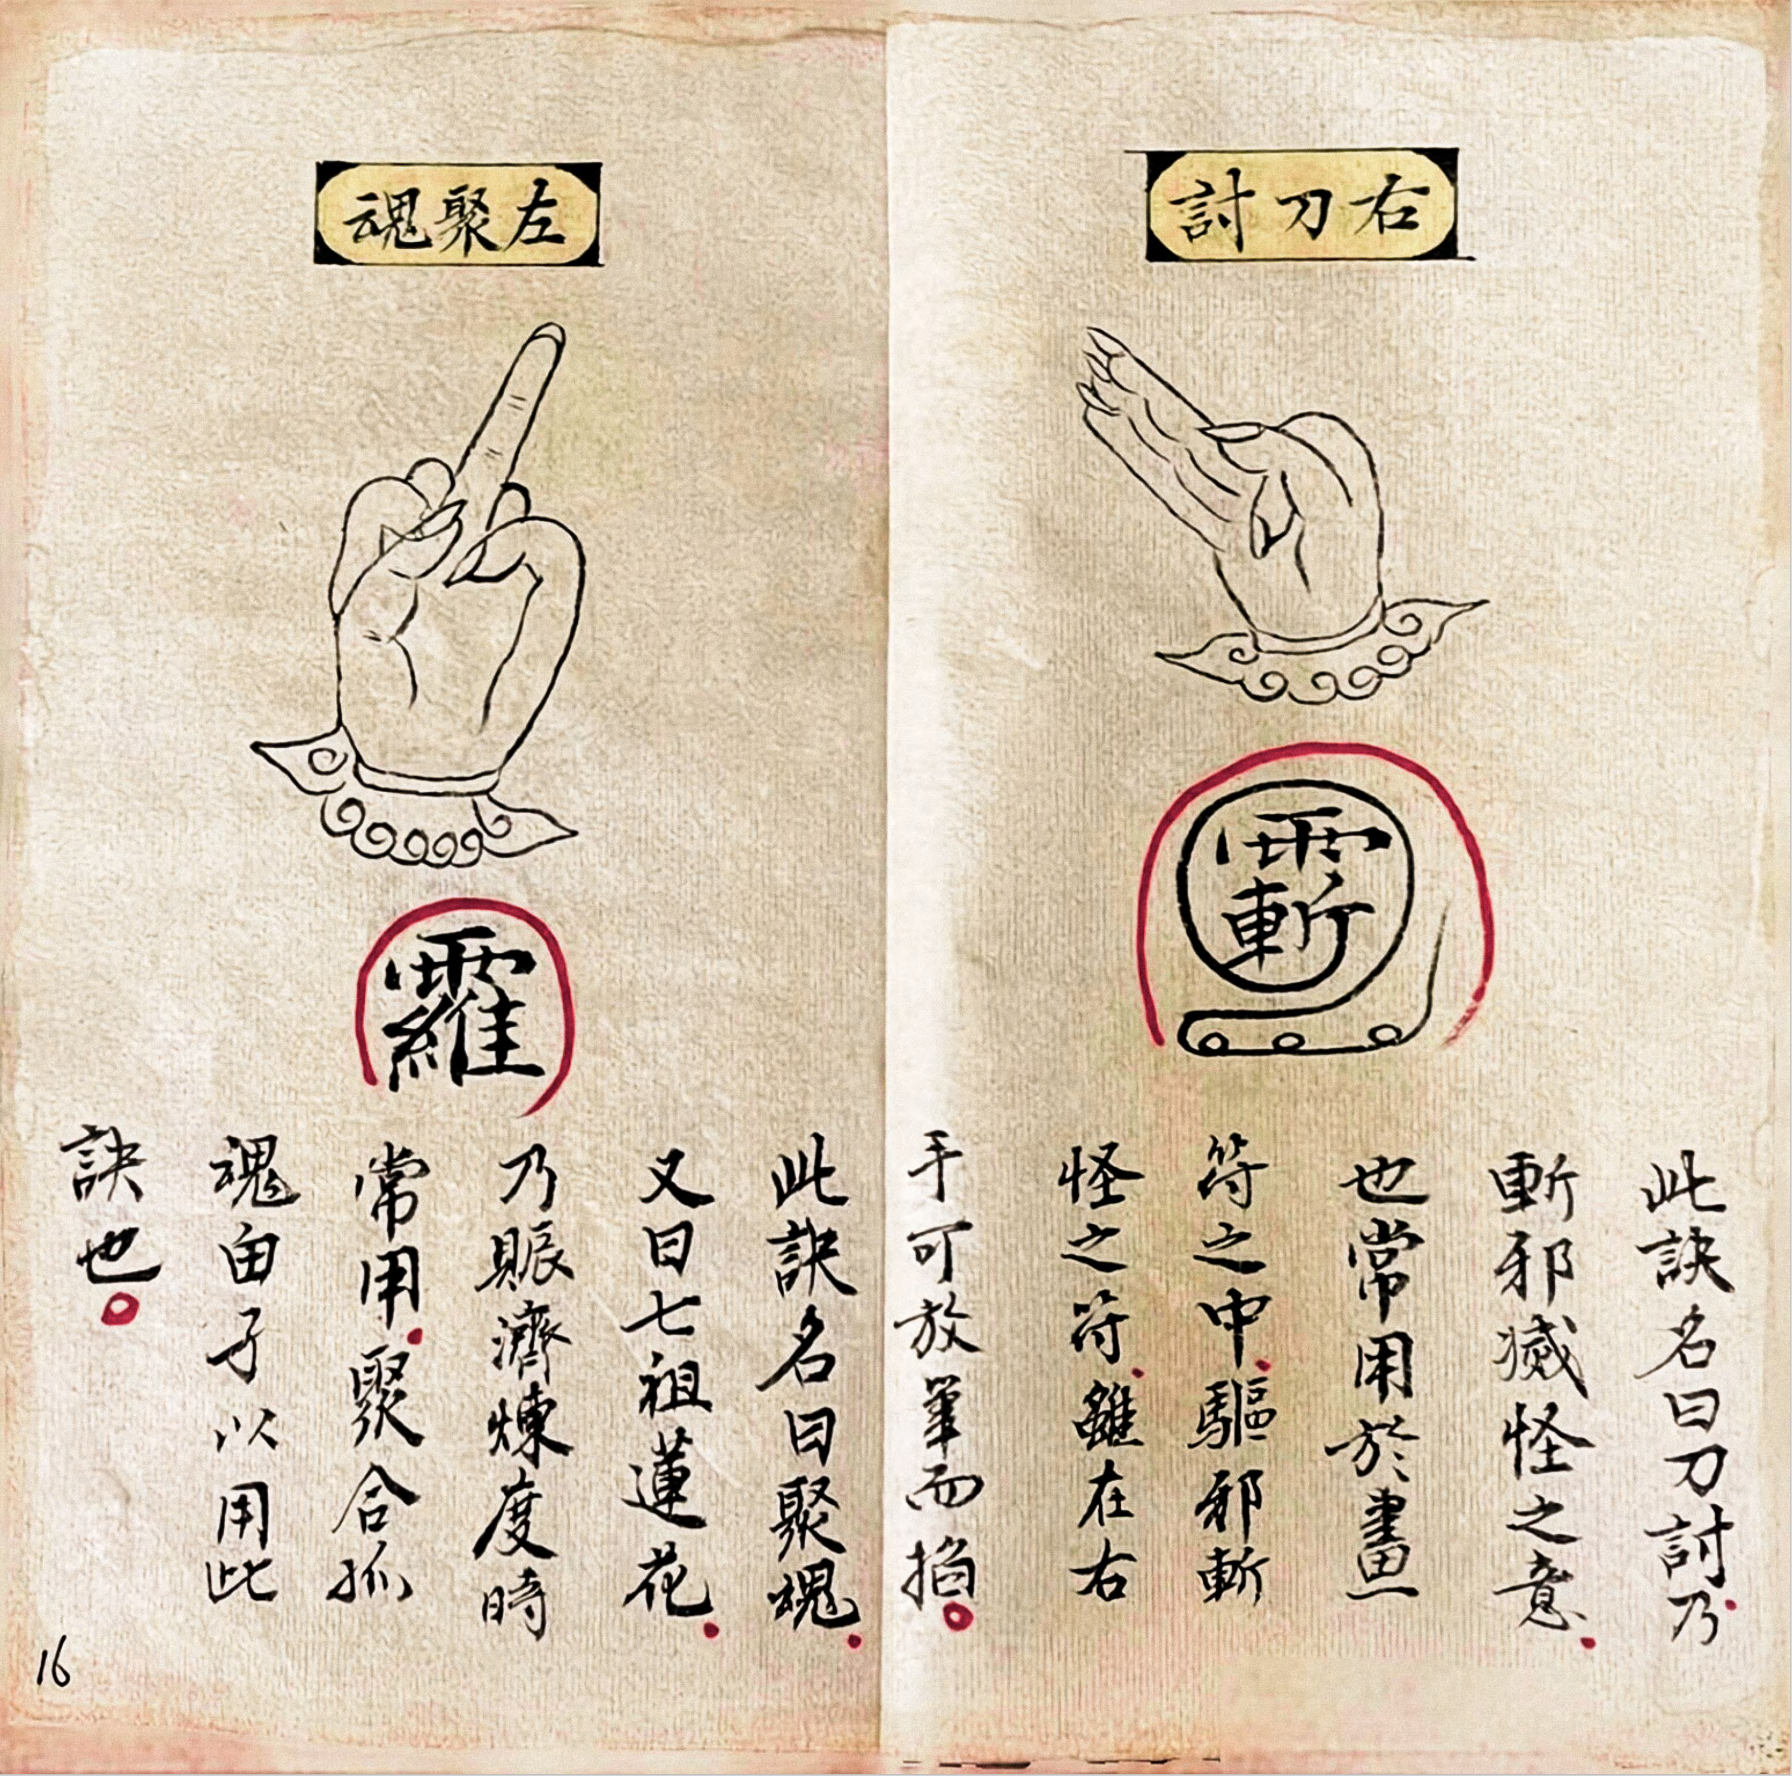 右刀討
此訣名曰刀討乃
斬邪滅怪之意
也常用於畫
符之中驅邪斬
怪之符雖在右
手可放筆而掐
左聚魂
此訣名曰聚魂
又曰七祖蓮花
乃賑濟煉度時
常用聚合孤
魂甶子以用此
訣也
16